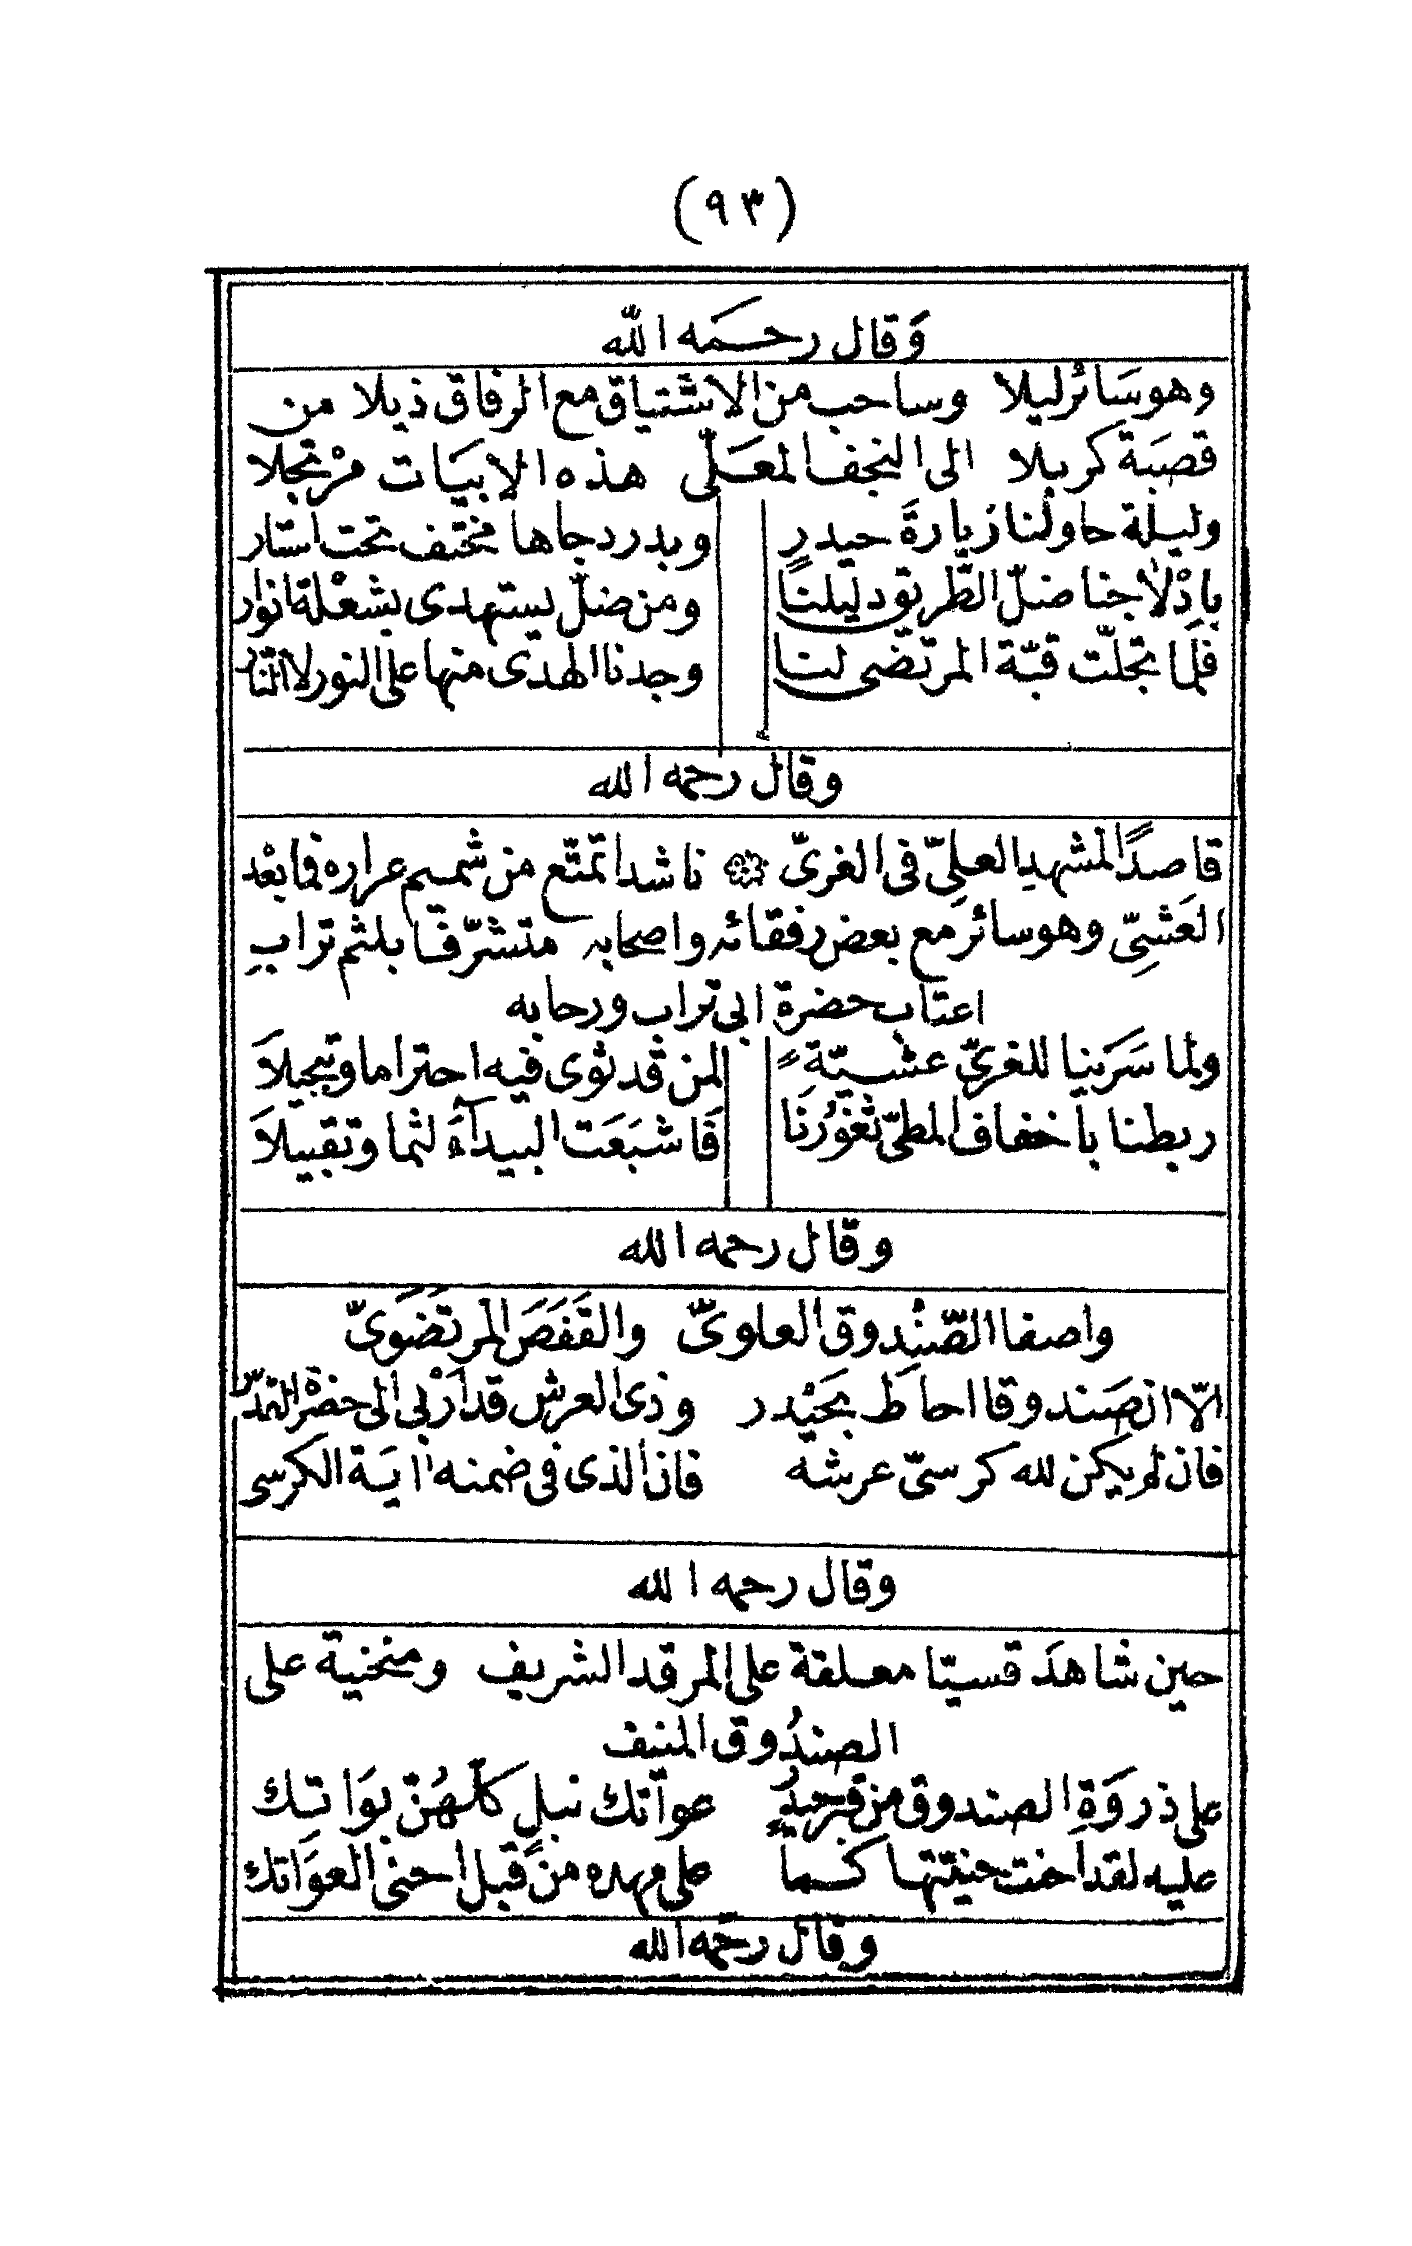 (٩٣)
وَقال رحمَه الله
وهو سَائر ليلا وساحب من الاشتياق مع الرفاق ذيلا من
قصبَة كربلا الى النجف المعَلّى هذه الابيَات مرْتجلا
وليلة حاولنا زيارةَ حيدرٍ وبدر دجاها مختف تحت استار
بادْلاجنا ضلّ الطّريق دليلنا ومن ضلّ يستهدى بشعْلة انوار
فلما تجلّت قبّة المرتضى لنا وجدنا الهدى منها على النور لا النار
وقال رحمه الله
قاصدًا المشهد العلىّ فى الغرىّ ناشدا تمتّع من شميم عراره فما بعْد
العَشِىّ وهو سائر مع بعض رفقائه واصحابه متشرّفا بلثم ترابِ
اعتاب حضرة ابى تراب ورحابه
ولما سَرَينا للغرىّ عشيّةً لمن قد ثوى فيه احتراما وتبجيلاَ
ربطنا باخفاف المطىّ ثغورنَا فاشبَعَت البيدآءَ لثما وتقبيلاَ
وقال رحمه الله
واصفا الصّندوق العلوىّ والقفَصَ المرتضَوىّ
الاّ ان صَندوقا احاط بحَيْدر وذى العرش قد ارْبى الى حضرْة القدْس
فان لم يكن لله كرسىّ عرشه فان الذى فى ضمنه اآيَة الكرسى
وقال رحمه الله
حين شاهدَ قسيّا معلقة على المرقد الشريف ومنحنية على
الصندُوق المنيف
على ذروَةِ الصندوق من قبر حيدرٍ عواتك نبل كلّهُنّ بوَاتِك
عليه لقد اَخنت حنيّتها كما على مهده من قبل احنى العوَاتك
وقال رحمه الله